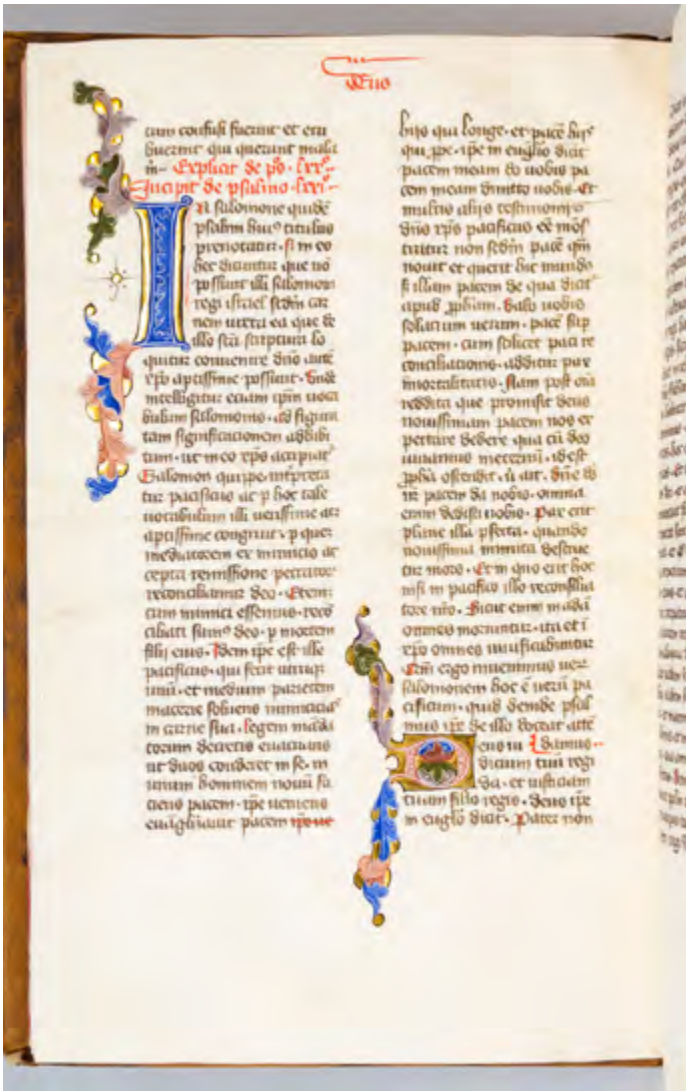 Deus
cum confusi fuerint et eru
buerint qui querunt mala
m̄· Explicit de pō· lxxͦ·
Incipit de psalmo· lxxi·
IN salomone quidē
psalmi huiꝰ titulus
prenotatur· s̄ in eo
hec dicuntur que nō
possunt illi salomoni
regi israel scdm car
nem iuxta ea que de
illo scā scriptura lo
quitur conuenire dn̄o autē
xp̄o aptissime possunt· Unde
intelligitur eciam ip̄m uoca
bulum salomonis· ad figura
tam significacionem adhibi
tum· ut in eo xp̄s accipiat᷑
Salomon quippe int̄preta
tur pacificus ac p hoc tale
uocabulum illi uerissime ac
aptissime congruit· p quem
mediatorem ex inimicis ac
cepta remissione peccatoꝝ
reconciliamur deo· Eteni
cum inimici essemus· recō
ciliati sumꝰ deo· p mortem
filij eius· Idem ip̄e est ille
pacificus· qui fecit utraqꝫ
unū· et medium parietem
macerie soluens inimiciciaˢ
in carne sua· legem mādā
torum decretis euacuans
ut duos conderet in se· in
unum hominem nouū fa
ciens pacem· ip̄e ueniens
euāgliȥauit pacem
hijs qui longe· et pacē hijs
qui ꝓpe· ip̄e in euglio dicit
pacem meam do uobis pa
cem meam dimitto uobis· Et
multis alijs testimonijs
dn̄s xp̄s pacificus eē mōs
tratur non scdm pacē quā
nouit et querit hic mundꝰ
s̄ illam pacem de qua dicit᷑
apud ꝓphām· Dabo uobis
solacium uerum· pacē sup
pacem· cum scilicet paci re
conciliacionis· additur pax
īmortalitatis· Nam post oīa
reddita que promisit deus
nouissimam pacem nos ex
pectare debere qua cū deo
uiuamus in eternū· idest
ꝓphā ostendit· ū ait· dn̄e dꝰ
nr̄ pacem da nobis· omnia
enim dedisti nobis· Pax erit
plane illa pfecta· quando
nouissima inimica destrue
tur mors· Et in quo erit hoc
nisi in pacifico illo reconsilia
tore nr̄o· Sicut enim in adā
omnes moriuntur· ita et ī
xp̄o omnes uiuificabuntur
Qm̄ ergo inuenimus uerū
salomonem hoc ē uerū pa
cificum· quid deinde psal
mus ip̄e de illo doceat atte
Deus iudi damus
dicium tuū regi
da· et iusticiam
tuam filio regis· Deus ip̄e
in euglo dicit· Pater non